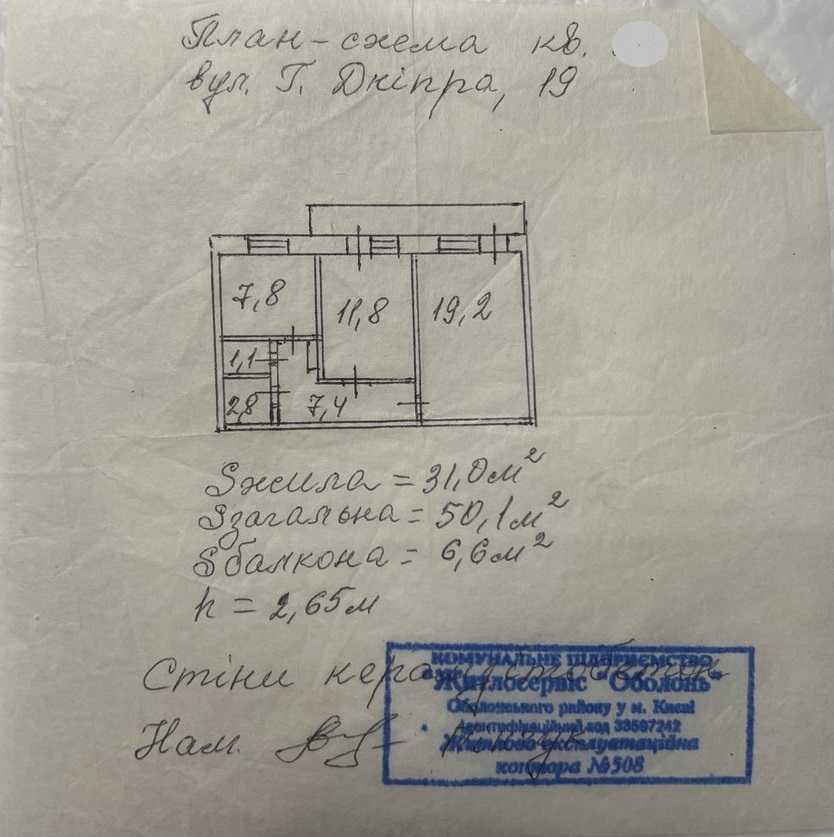 План-схема кв.
вул. Г. Дніпра, 19
7,8
11,8
19,2
1,1
2,8
7,4
Sжила = 31,0м²
Sзагальна = 50,1м²
Sбалкона = 6,6м²
h = 2,65м
Стіни керамзитобетон
КОМУНАЛЬНЕ ПІДПРИЄМСТВО
"Житлосервіс "Оболонь"
Оболонського району у м. Києві
Ідентифікаційний код 33597242
Житлово-експлуатаційна
контора №508
Нач.